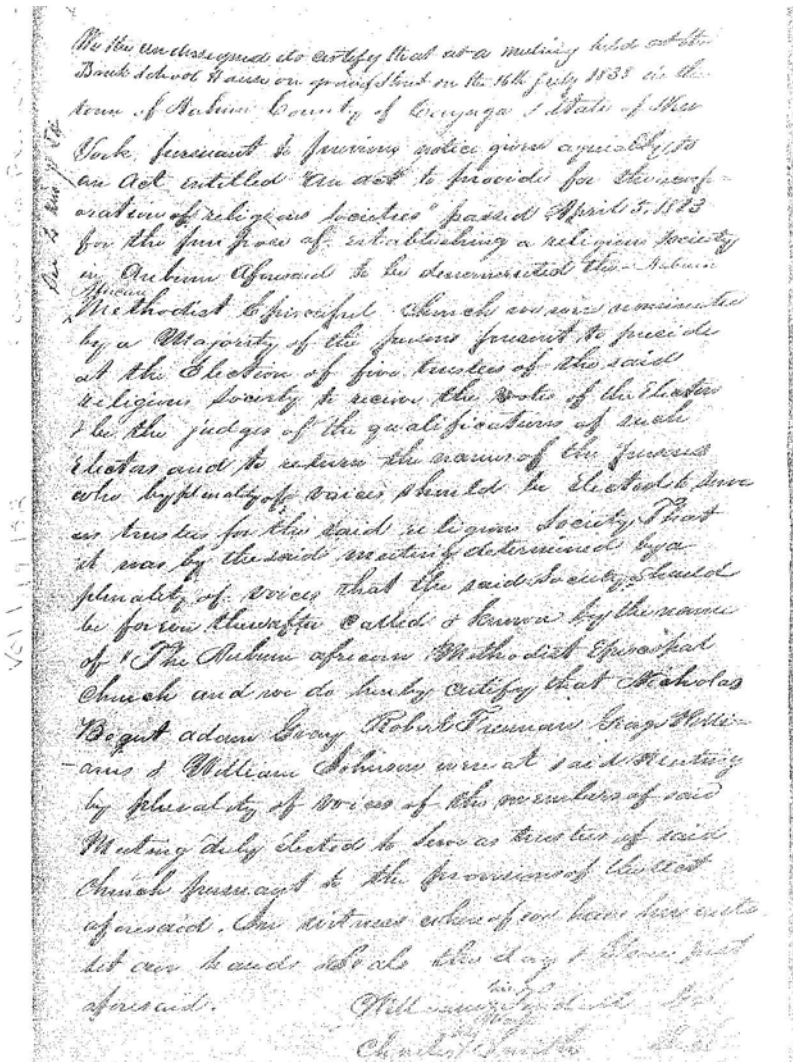 We the undersigned do certify that at a meeting held at the
Bank School House on Street on the 16th July 1838 in the
town of Auburn County of Cayuga & State of New
York, pursuant to previous notice given agreably to
an Act entitled "an act to provide for the incorp-
oration of religious Societies" passed April 5, 1813
for the purpose of establishing a religious society
in Auburn Aforesaid to be denominated the Auburn
African
Methodist Episcopal Church we were nominated
by a Majority of the persons present to preside
at the Election of five trustees of the said
religious Society to receive the votes of the Electors
& be the judges of the qualifications of such
Electors and to return the names of the persons
who by plurality of voices should be Elected to serve
as trustees for the said religious Society, That
it was by the said meeting determined by a
plurality of voices that the said Society should
be forever thereafter called & known by the name
of "The Auburn african Methodist Episcopal
Church and we do hereby certify that Nicholas
Bogart adam Gray Robert Freeman George Willi-
ams & William Johnson were at said Meeting
by plurality of voices of the members of said
Meeting duly elected to serve as trustees of said
Church pursuant to the provisions of the act
aforesaid. In witness whereof we have hereunto
set our hands & seals the day & place first
aforesaid.
his
mark
Charles Smith
Vol 1 P 132